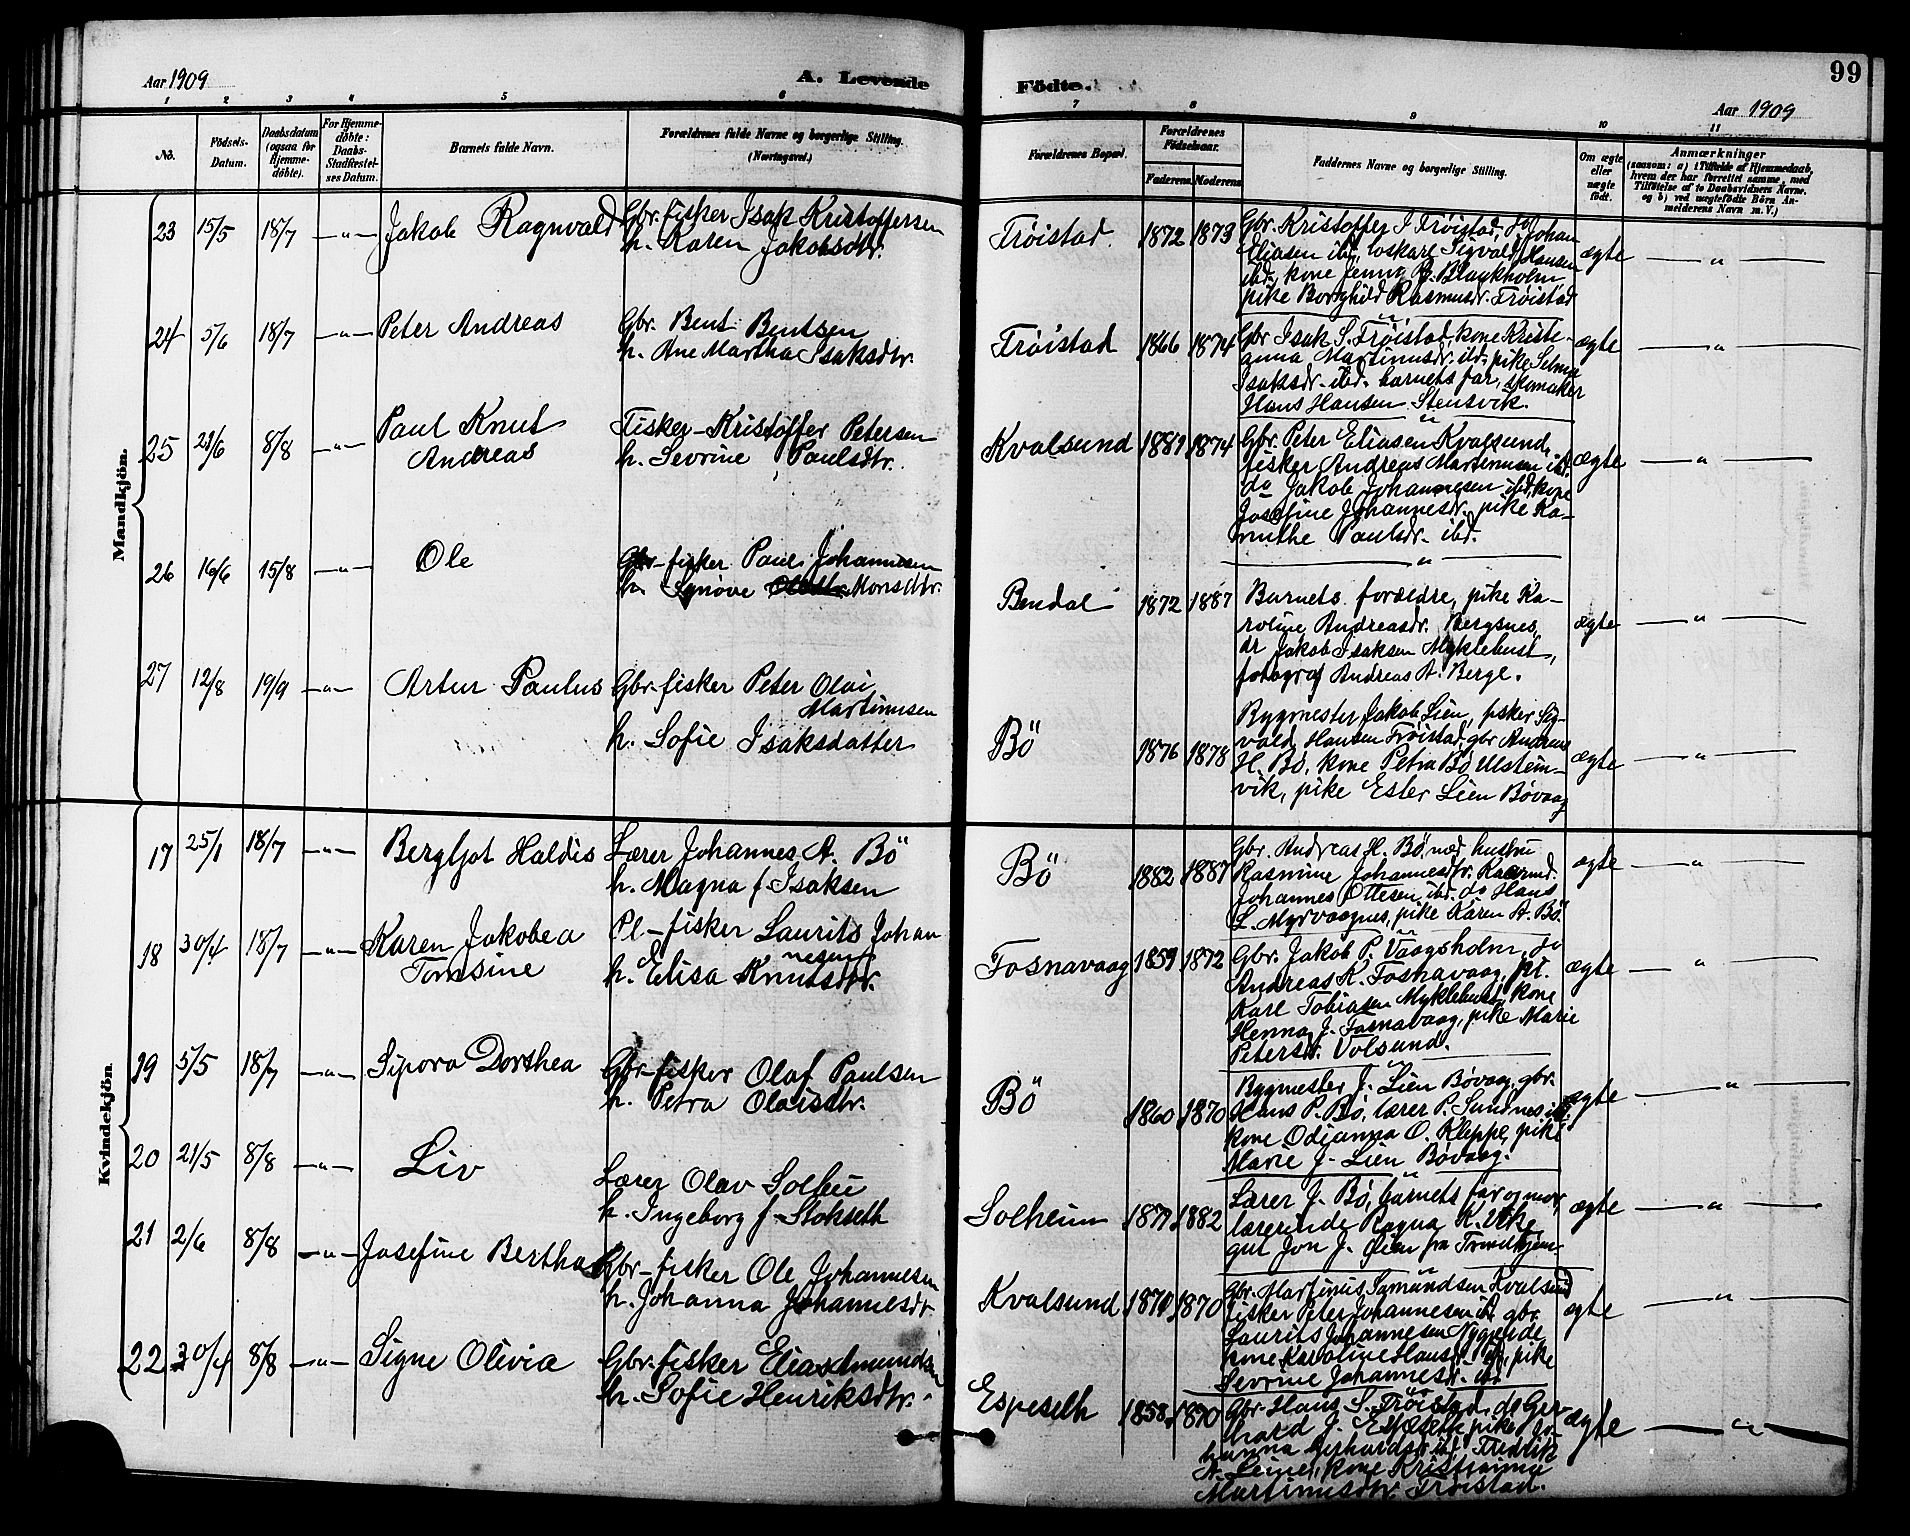 Aar 1909
A. Levende
1 2 3 4 5 6
No.
Födsels-
Datum.
Daabsdatum
(ogsaa for
Hjemme-
döbte).
For Hjemme-
döbte:
Daabs-
Stadfæstel-
ses Datum.
Barnets fulde Navn.
Forældrenes fulde Navne og borgerlige Stilling.
(Næringsvei.)
Mandkjön.
23 15/5 18/7 —"— Jakob Ragnvald Gbr. fisker Isak Kristoffersen
h. Karen Jakobsdtr.
24 5/6 18/7 —"— Peter Andreas Gbr. Bent Bentsen
h. Ane Martha Isaksdtr.
25 21/6 8/8 —"— Paul Knut Fisker Kristoffer Petersen
Andreas h. Sevrine Paulsdtr.
26 16/6 15/8 —"— Ole Gbr-fisker Paul Johannesen
h. Synöve Monsdtr.
27 12/8 19/9 —"— Artur Paulus Gbr-fisker Peter Olai
Martinusen
h. Sofie Isaksdatter
Kvindekjön.
17 25/1 18/7 —"— Bergljot Haldis Lærer Johannes A. Bö
h. Magna f. Isaksen
18 30/4 18/7 —"— Karen Jakobea Pl-fisker Laurits Johan
nesen
Tomsine h. Elisa Knutsdtr.
19 5/5 18/7 —"— Sipora Dorthea Gbr-fisker Olaf Paulsen
h. Petra Olaisdtr.
20 21/5 8/8 —"— Liv Lærer Olav Solheim
h. Ingeborg f. Stokseth
21 2/6 8/8 —"— Josefine Bertha Gbr-fisker Ole Johannesen
h. Johanna Johannesdr.
22 30/4 8/8 —"— Signe Olivia Gbr-fisker Elias Amundsen
h. Sofie Henriksdtr.
Födte.
99
Aar 1909
7 8 9 10 11
Forældrenes Bopæl.
Forældrenes
Födselsaar.
Faderens. Moderens.
Faddernes Navne og borgerlige Stilling.
Om ægte
eller
uægte
födt.
Anmærkninger
(saasom: a) i Tilfælde af Hjemmedaab,
hvem der har forrettet samme, med
Tilföielse af to Daabsvidners Navne.
og b) ved uægtefödte Börn An-
melderens Navn m. V.)
Tröistad. 1872 1873 Gbr. Kristoffer I. Tröistad, do Johan
Eliasen ibd, loskarl Sigvald Hansen
ibd., kone Jenny B. Blankholm,
pike Borghild Rasmusdr. Tröistad
ægte —"—
Tröistad 1866 1874 Gbr Isak S. Tröistad, kone Kristi-
anna Martinusdr. ibd, pike Selma
Isaksdr. ibd. barnets far, skomaker
Hans Hansen Stensvik.
ægte —"—
Kvalsund 1881 1874 Gbr. Peter Eliasen Kvalsund,
fisker Andreas Martinusen ibd.
do Jakob Johannesen ibd, kone
Josefine Johannesdr. pike Ka-
mithe Paulsdr. ibd.
ægte —"—
Bendal 1872 1887 Barnets forældre, pike Ka-
roline Andreasdr. Bergsnes,
dr Jakob Isaksen Myklebust,
fotograf Andreas A. Berge.
ægte —"—
Bö 1876 1878 Bygmester Jakob Lien, fisker Sig-
vald Hansen Tröistad, gbr Andreas
H. Bö, kone Petra Bö Ulstein-
vik, pike Ester Lien Bövaag
ægte —"—
Bö 1882 1887 Gbr. Andreas H. Bö, med hustru
Rasmine Johannesdtr.
Johannes Ottesen ibd. do Hans
L. Myrvaagnes, pike Karen A. Bö.
ægte —"—
Fosnavaag 1859 1872 Gbr. Jakob P. Vaagsholm, do
Andreas K. Fosnavaag, pl.
Karl Tobiasen Myklebust, kone
Henna J. Fosnavaag, pike Marie
Petersdr. Volsund.
ægte —"—
Bö 1860 1870 Bygmester J. Lien Bövaag, gbr.
Hans P. Bö, lærer P. Sundnes ibd,
kone Odianna O. Kleppe, pike
Marie J. Lien Bövaag.
ægte —"—
Solheim 1879 1882 Lærer J. Bö, barnets far og mor,
lærerinde Ragna K. Vike
gut Jon J. Öien fra Trondhjem
ægte —"—
Kvalsund 1870 Gbr. Martinus Samundsen Kvalsund
fisker Peter Johannesen ibd gbr
Laurits Johannesen Nygjerde
kone Karoline Hansdr. ibd, pike
Sevrine Johannesdr. ibd.
ægte —"—
Espeseth 1858 1870 Gbr. Hans S. Tröistad, do Ger-
hard J. Espeseth, pike Jo-
hanna Gerhardsdr ibd. Fredrik
A. Leine, kone Kristianna
Martinusdtr Tröistad.
ægte —"—